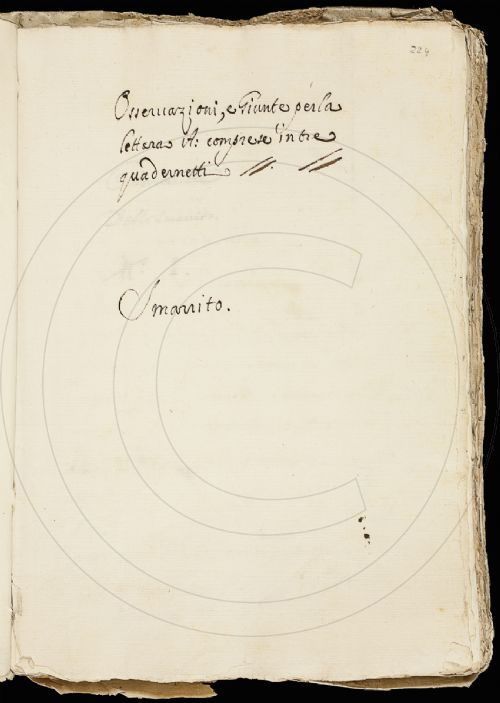 224
Osservazioni, e Giunte per la
lettera A: comprese in tre
quadernetti
Smarrito.